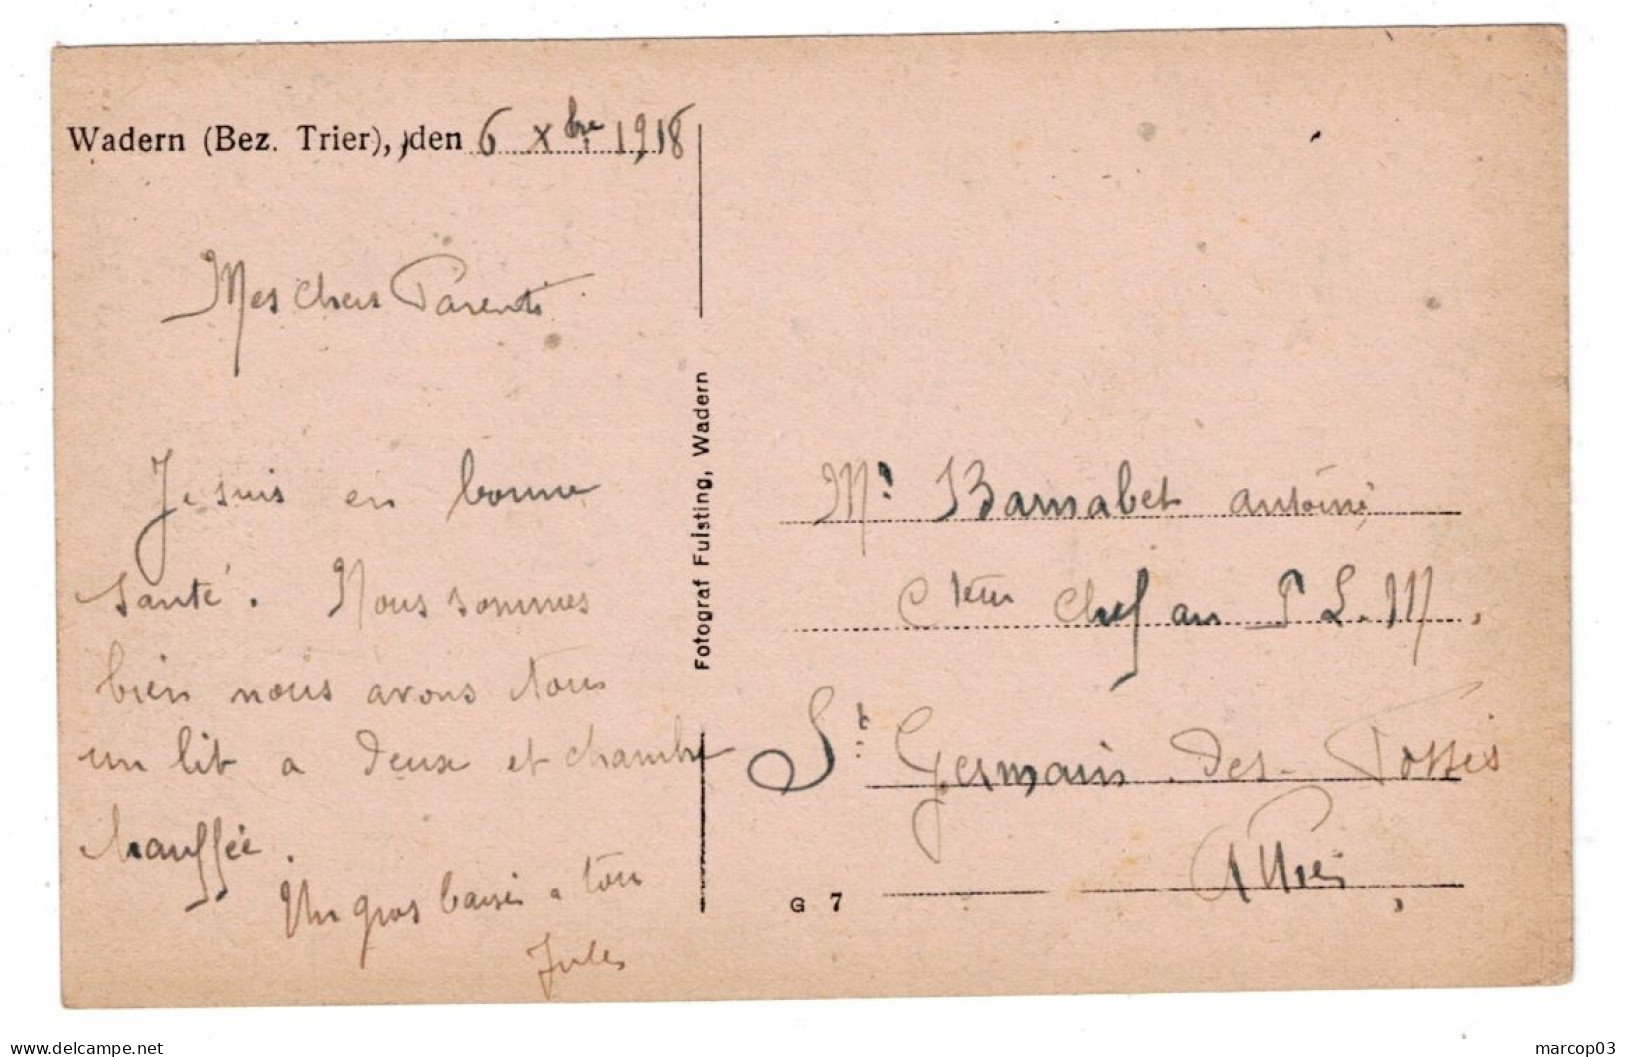 Wadern (Bez. Trier), den 6 Xbre 1918
Mes chers Parents
Je suis en bonne
santé. Nous sommes
bien nous avons tous
un lit a deux et chambre
chauffée.
Un gros baisé a tous
Jules
Fotograf Fuisting, Wadern
Mr Barnabet antoine
Cteur chef au P. L. M,
St Germain-des-Fossés
Allier
G 7
www.delcampe.net
marcop03